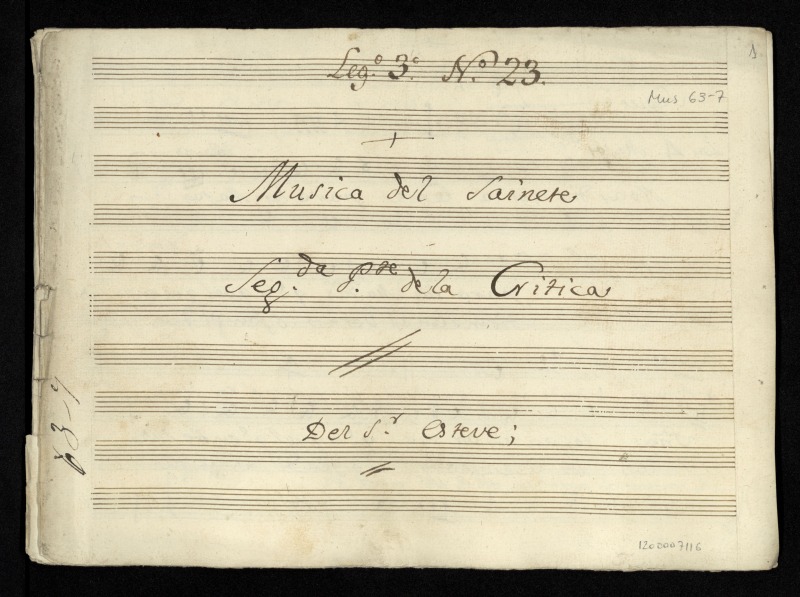 Leg.º 3.º N.º 23.
Mus 63-7
Musica del Sainete
Seg.da p.te de la Critica
Del S.r Esteve;
63-7
1200007116